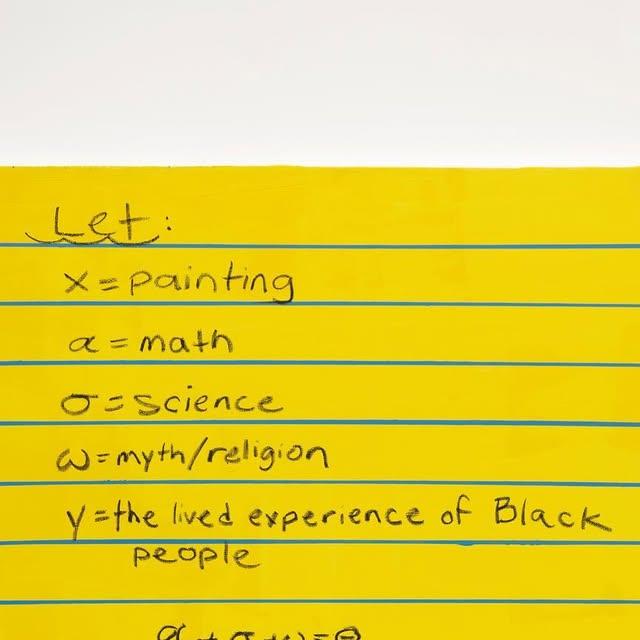 Let:
x=painting
α=math
σ=science
ω=myth/religion
y=the lived experience of Black
people
α+σ+ω=θ